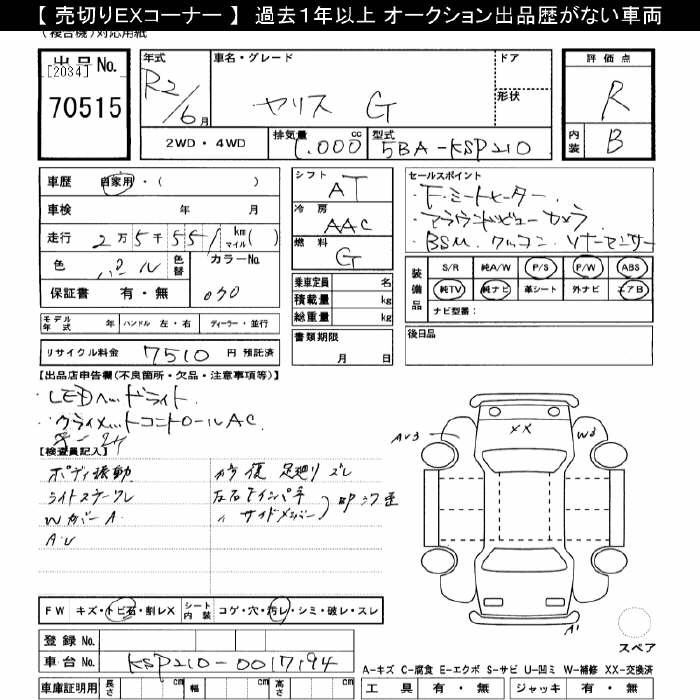 【 売切りEXコーナー 】 過去１年以上 オークション出品歴がない車両
(複合機)対応用紙
出品No.
[2034]
70515
年式
R2/6月
車名・グレード
ヤリス G
ドア
形状
評価点
R
内装
B
2WD・4WD
排気量
1.000cc
型式
5BA-KSP210
車歴 自家用・( )
車検 年 月
走行 2万5千551km マイル( )
色 パール
色替
カラーNo.
070
保証書 有・無
シフト
AT
冷房
AAC
燃料
G
乗車定員 名
積載量 kg
総重量 kg
セールスポイント
・F・ミートヒーター・
・アラウンドビューカメラ
・BSM.クルコン.ソナーセンサー
装備品
S/R 純A/W P/S P/W ABS
純TV 純ナビ 革シート 外ナビ エアB
ナビ型番：
モデル年式 年 ハンドル 左・右 ディーラー・並行
リサイクル料金 7510 円 預託済
書類期限
月 日
後日品
【出品店申告欄(不良箇所・欠品・注意事項等)】
・LEDヘッドライト.
・クライメットコントロールAC
【検査員記入】
ボディ振動
ライトステーズレ
Wカバー A
A.U
修復 足廻りズレ
左右Fインパネ
〃 サイドメンバー
FW キズ・トビ石・割レX シート内装 コゲ・穴・汚レ・シミ・破レ・スレ
AU3
XX
W3
A1
スペア
登録 No.
車台 No. KSP210-0017194
車庫証明用 長さ cm 幅 cm 高さ cm
A-キズ C-腐食 E-エクボ S-サビ U-凹ミ W-補修 XX-交換済
工具 有・無 ジャッキ 有・無